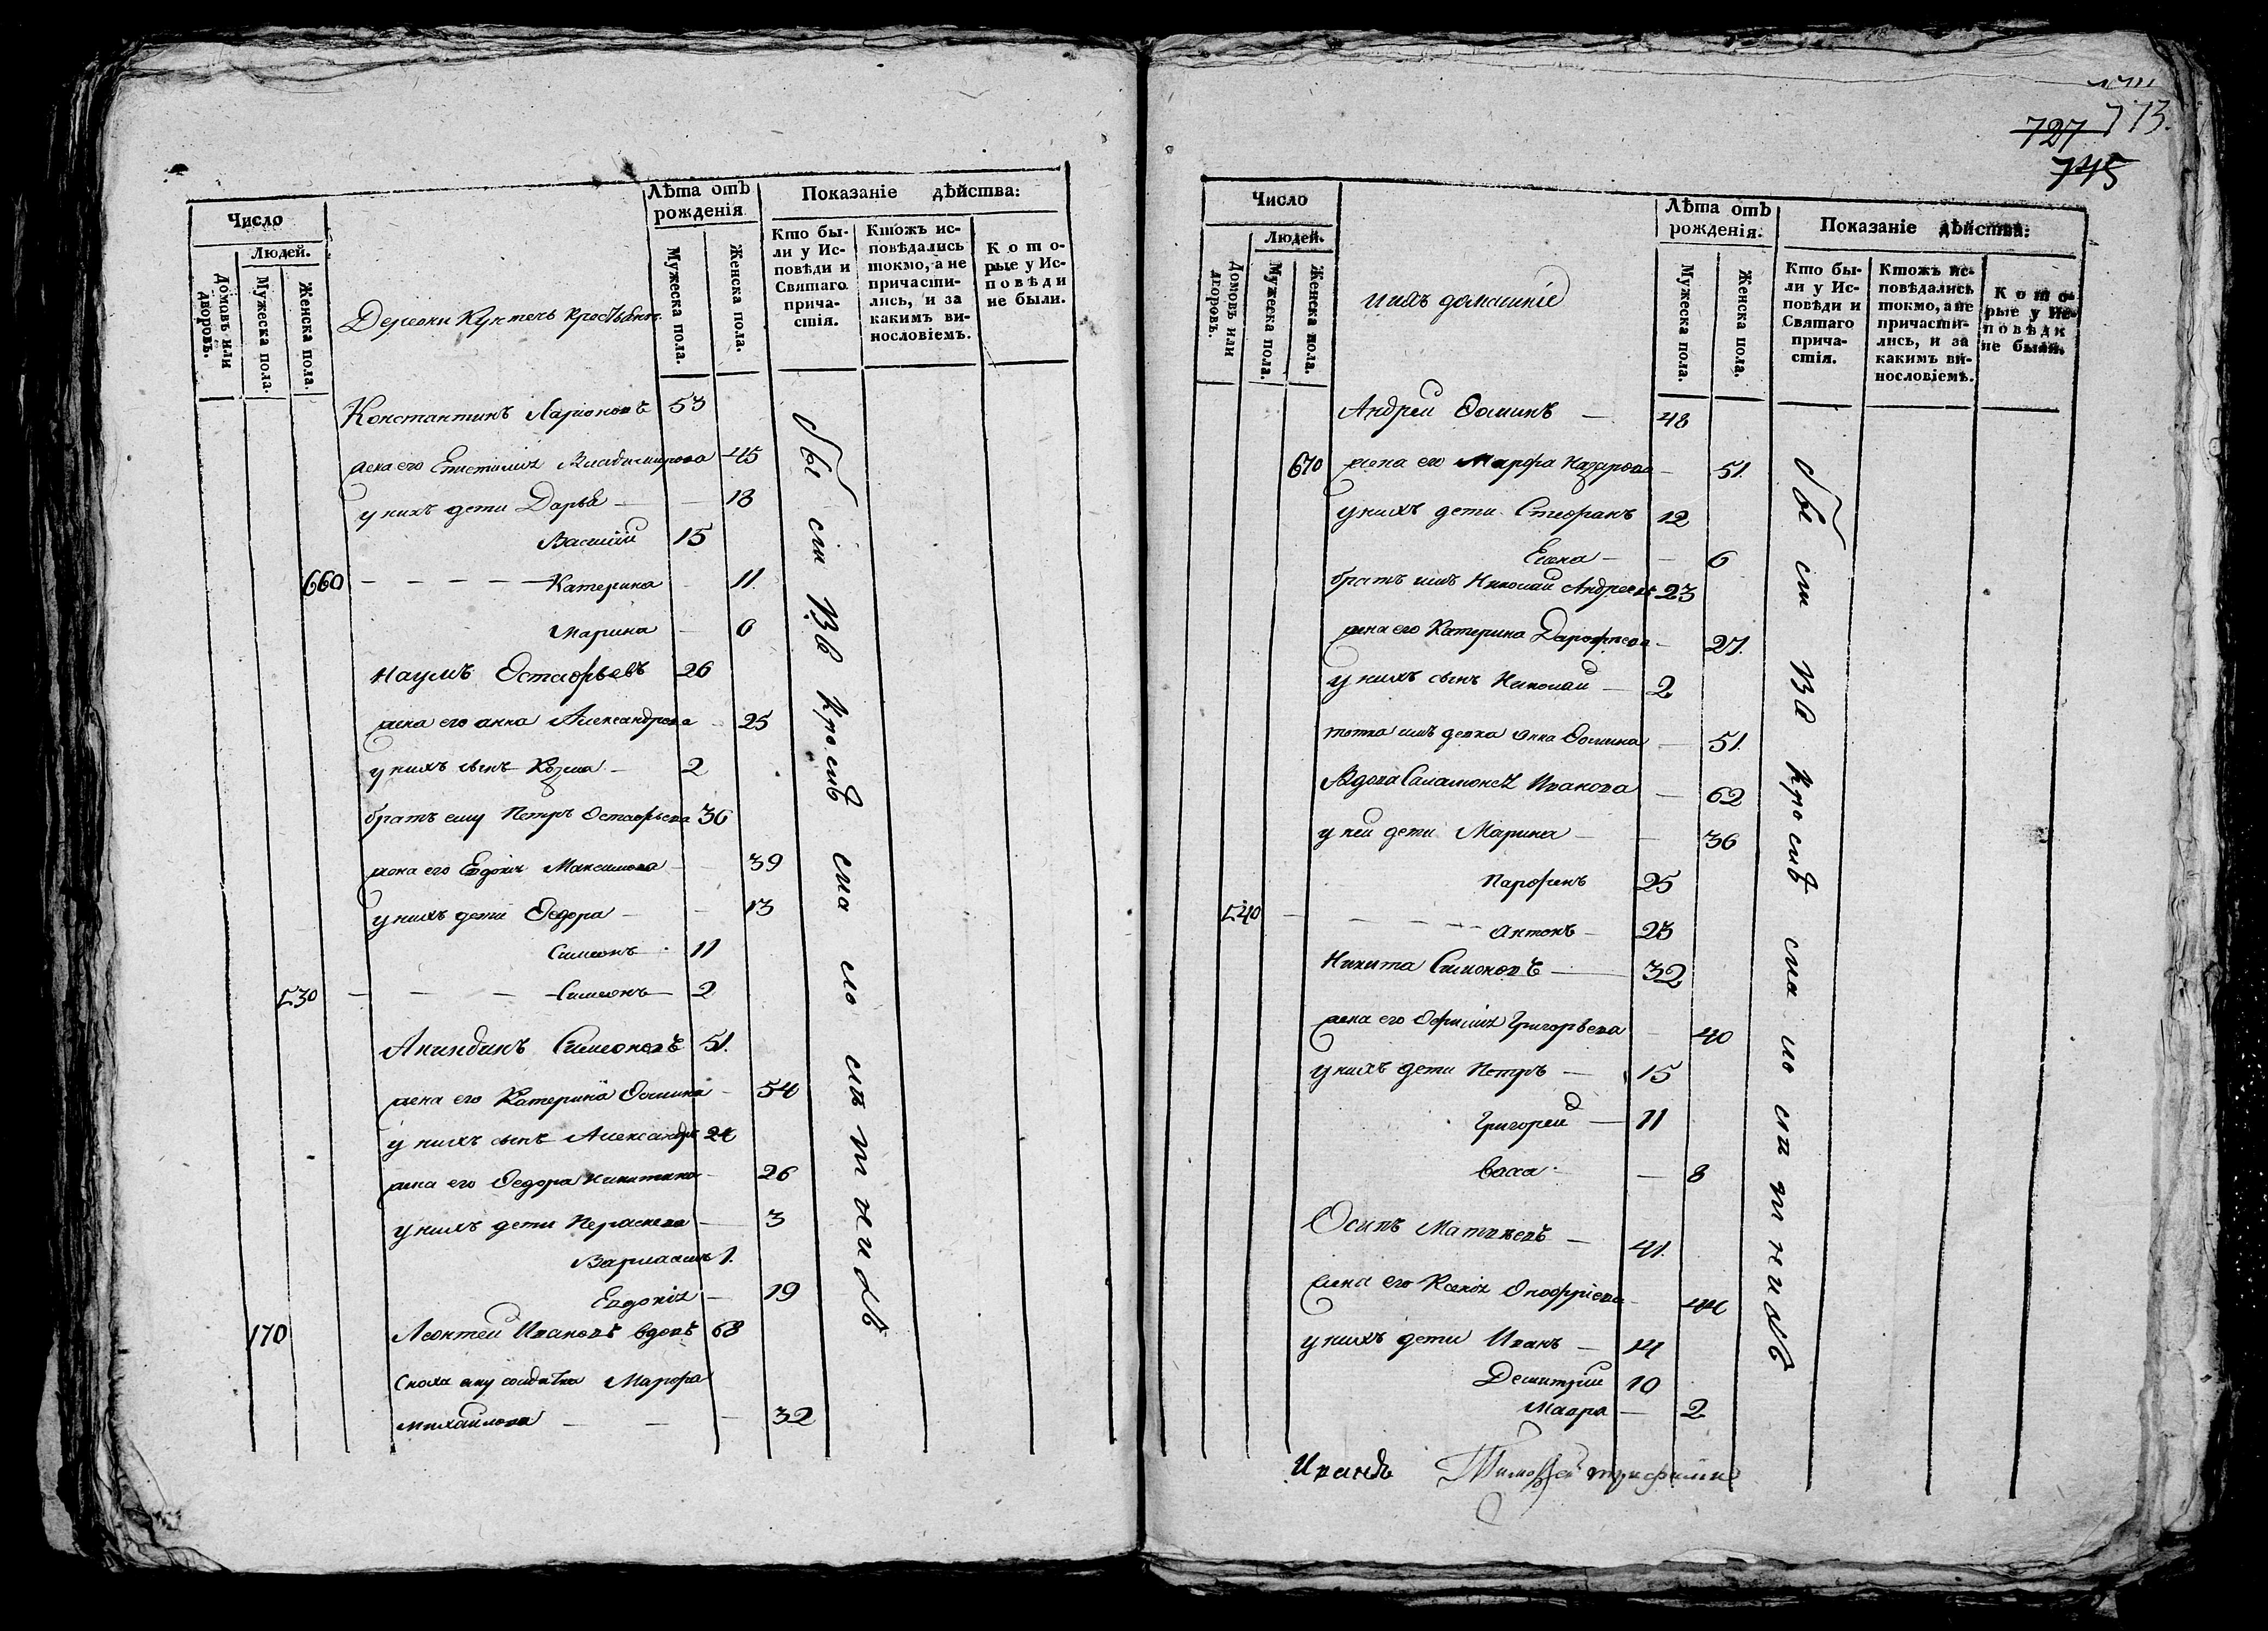 Число
Людей.
Домовъ или дворовъ.
Мужеска пола.
Женска пола.
Деревни крестьяне
Лѣта отъ рожденія
Мужеска пола.
Женска пола.
Показаніе дѣйства:
Кто были у Исповѣди и Святаго причастія.
Ктожъ исповѣдались токмо, а не причастились, и за какимъ винословіемъ.
Которые у Исповѣди не были.
Константинъ Ларіоновъ 53
жена его Епистимія Владимирова 45
у нихъ дети Дарья — 18
Василій 15
660 Катерина 11.
Марина — 6
Наумъ Остафьевъ 26
жена его анна Александрова 25
у нихъ сынъ Козма — 2
братъ ему Петръ Остафьевъ 36
жена его Евдокія Максимова — 39
у нихъ дети Ѳедора — 13
Симеонъ 11
530 — Симеонъ — 2
Акиндинъ Симеоновъ 51.
жена его Катерина Ѳомина — 54
у нихъ сынъ Александръ 24
жена его Ѳедора Никитина — 26
у нихъ дети Пераскева — 3
Варлаамъ 1.
Евдокія — 19
170 Леонтей Ивановъ вдовъ 68
Сноха ему солдатка Марфа
михайлова — 32
773.
727
745
Число
Людей.
Домовъ или дворовъ.
Мужеска пола.
Женска пола.
и ихъ домашніе
Лѣта отъ рожденія.
Мужеска пола.
Женска пола.
Показаніе дѣйства:
Кто были у Исповѣди и Святаго причастія.
Ктожъ исповѣдались токмо, а не причастились, и за какимъ винословіемъ.
Которые у Исповѣди не были.
Андрей Ѳоминъ — 48
670 жена ево Марфа Назарова — 51.
у нихъ дети Стефанъ 12
Елена — 6
братъ имъ Николай Андреевъ 23
жена его Катерина Дарофеева — 27.
у нихъ сынъ Николай — 2
тотка имъ девка Анна Ѳомина — 51.
Вдова Саламонея Иванова — 62
у ней дети Марина — 36
Парфенъ 25
540 — Антонъ — 23
Никита Симоновъ — 32
жена его Офимія Григорьева — 40
у нихъ дети Петръ — 15
Григорей — 11
Васса — 8
Осипъ Матвѣевъ — 41.
жена его Ксенія Оноффріева — 44
у нихъ дети Иванъ — 14
Демитрій 10
Мавра — 2
Иванъ Тимоѳей